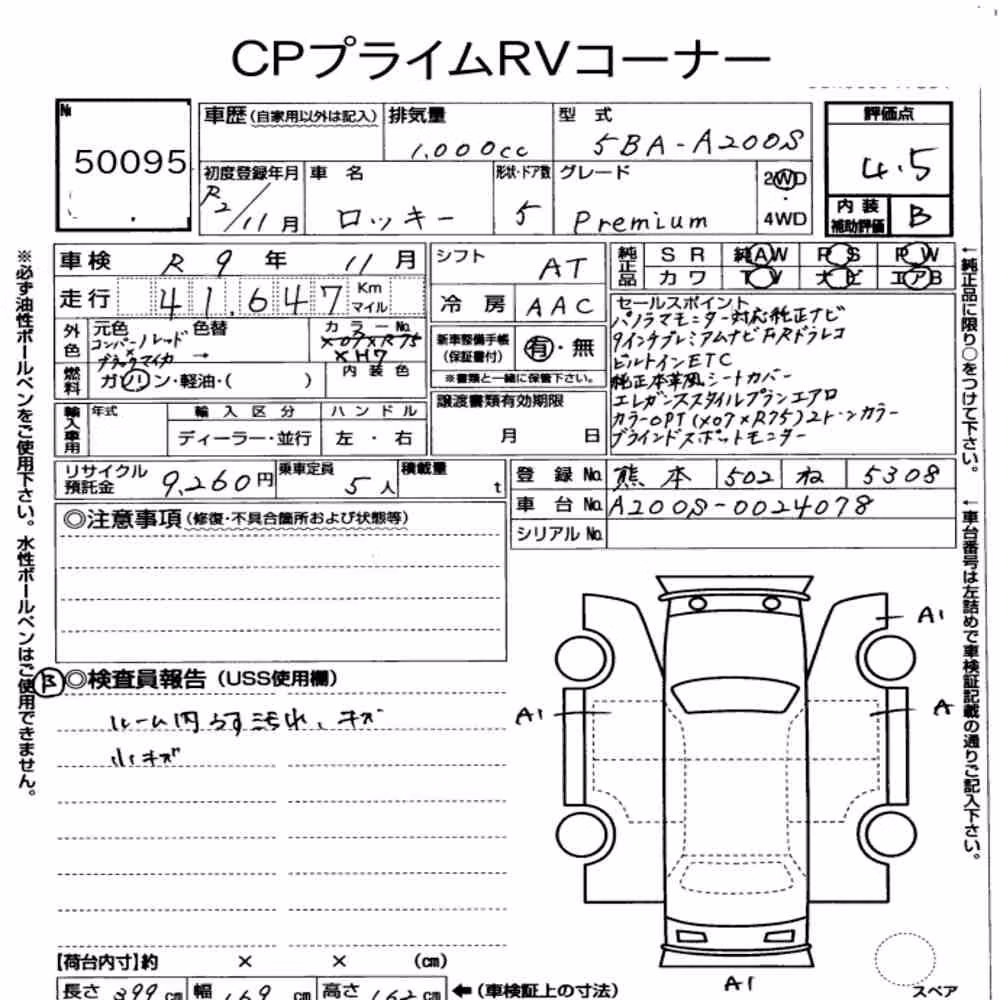 CPプライムRVコーナー
№
50095
車歴(自家用以外は記入)
排気量
1,000cc
型 式
5BA-A200S
評価点
4.5
内装補助評価
B
初度登録年月
R2/11月
車 名
ロッキー
形状・ドア数
5
グレード
Premium
2WD
・
4WD
車検 R 9年 11月
走行 41,647 Km マイル
シフト AT
冷房 AAC
純正品
SR 純AW PS PW
カワ TV ナビ エアB
外色
元色
コンパーノレッド
×
ブラックマイカ
色替
→
カラーNo.
X07×R75
XH7
燃料
ガソリン・軽油・( )
内装色
新車整備手帳(保証書付)
有・無
※書類と一緒に保管下さい。
譲渡書類有効期限
月 日
輸入車用
年式
輸入区分
ディーラー・並行
ハンドル
左・右
セールスポイント
パノラマモニター対応純正ナビ
9インチプレミアムナビ FRドラレコ
ビルトインETC
純正本革風シートカバー
エレガンススタイルプランエアロ
カラーOPT(X07×R75)2トーンカラー
ブラインドスポットモニター
リサイクル預託金 9,260円
乗車定員 5人
積載量 t
登録No. 熊本 502 ね 5308
車台No. A200S-0024078
シリアルNo.
◎注意事項(修復・不具合箇所および状態等)
B
◎検査員報告(USS使用欄)
小キズ
A1
A1
A
A1
【荷台内寸】約 × × (cm)
長さ 399cm 幅 169cm 高さ 162cm
←(車検証上の寸法)
スペア
※必ず油性ボールペンをご使用下さい。水性ボールペンはご使用できません。
←純正品に限り○をつけて下さい。
←車台番号は左詰めで車検証記載の通りご記入下さい。